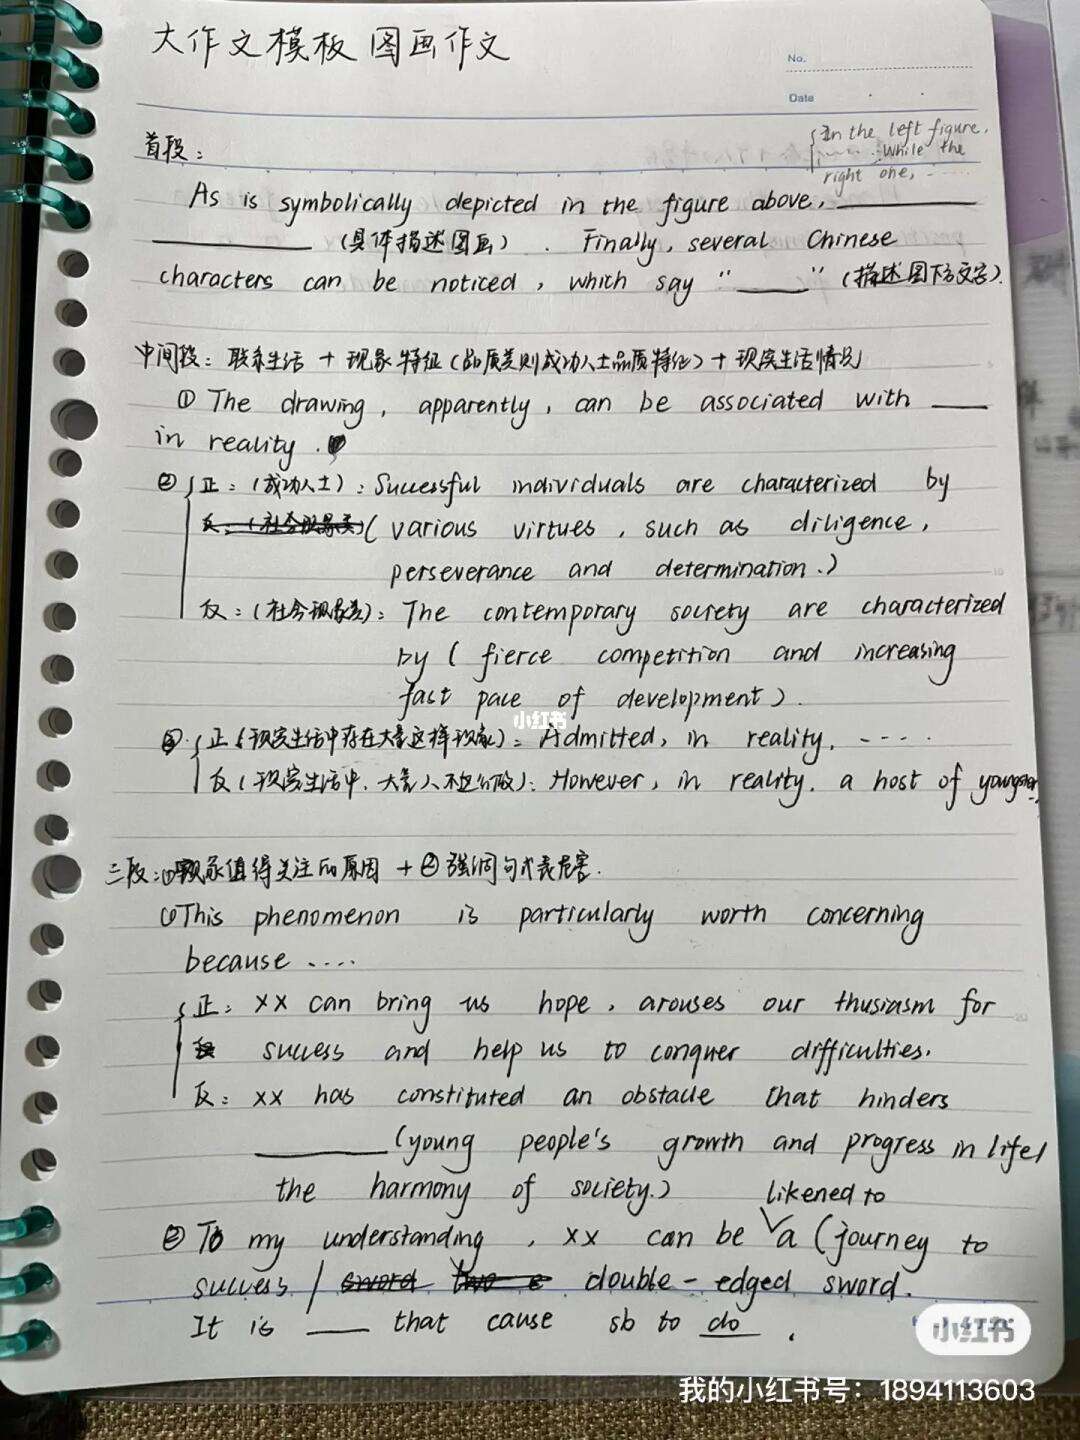 大作文模板 图画作文
No.
Date
首段：
In the left figure,
...... while the
right one, ......
As is symbolically depicted in the figure above, ______
______ (具体描述图画). Finally, several Chinese
characters can be noticed, which say "____" (描述图下方文字).
中间段：联系生活 + 现象特征(品质类则成功人士品质特征) + 现实生活情况
① The drawing, apparently, can be associated with ___
in reality.
② 正：(成功人士)：Successful individuals are characterized by
反：(社会现象类) ( various virtues, such as diligence,
perseverance and determination.)
反：(社会现象类)：The contemporary society are characterized
by ( fierce competition and increasing
fast pace of development).
小红书
③ 正(现实生活中存在大量这样现象)：Admitted, in reality, ....
反(现实生活中，大量人不这么做)：However, in reality, a host of youngster
三段：①现象值得关注的原因 + ②强调句代表危害.
①This phenomenon is particularly worth concerning
because ....
正：xx can bring us hope, arouses our thusiasm for
反 success and help us to conquer difficulties.
反：xx has constituted an obstacle that hinders
______ (young people's growth and progress in life/
the harmony of society.) likened to
② To my understanding, xx can be a (journey to
success / sword two e double-edged sword.
It is ___ that cause sb to do .
小红书
我的小红书号：1894113603